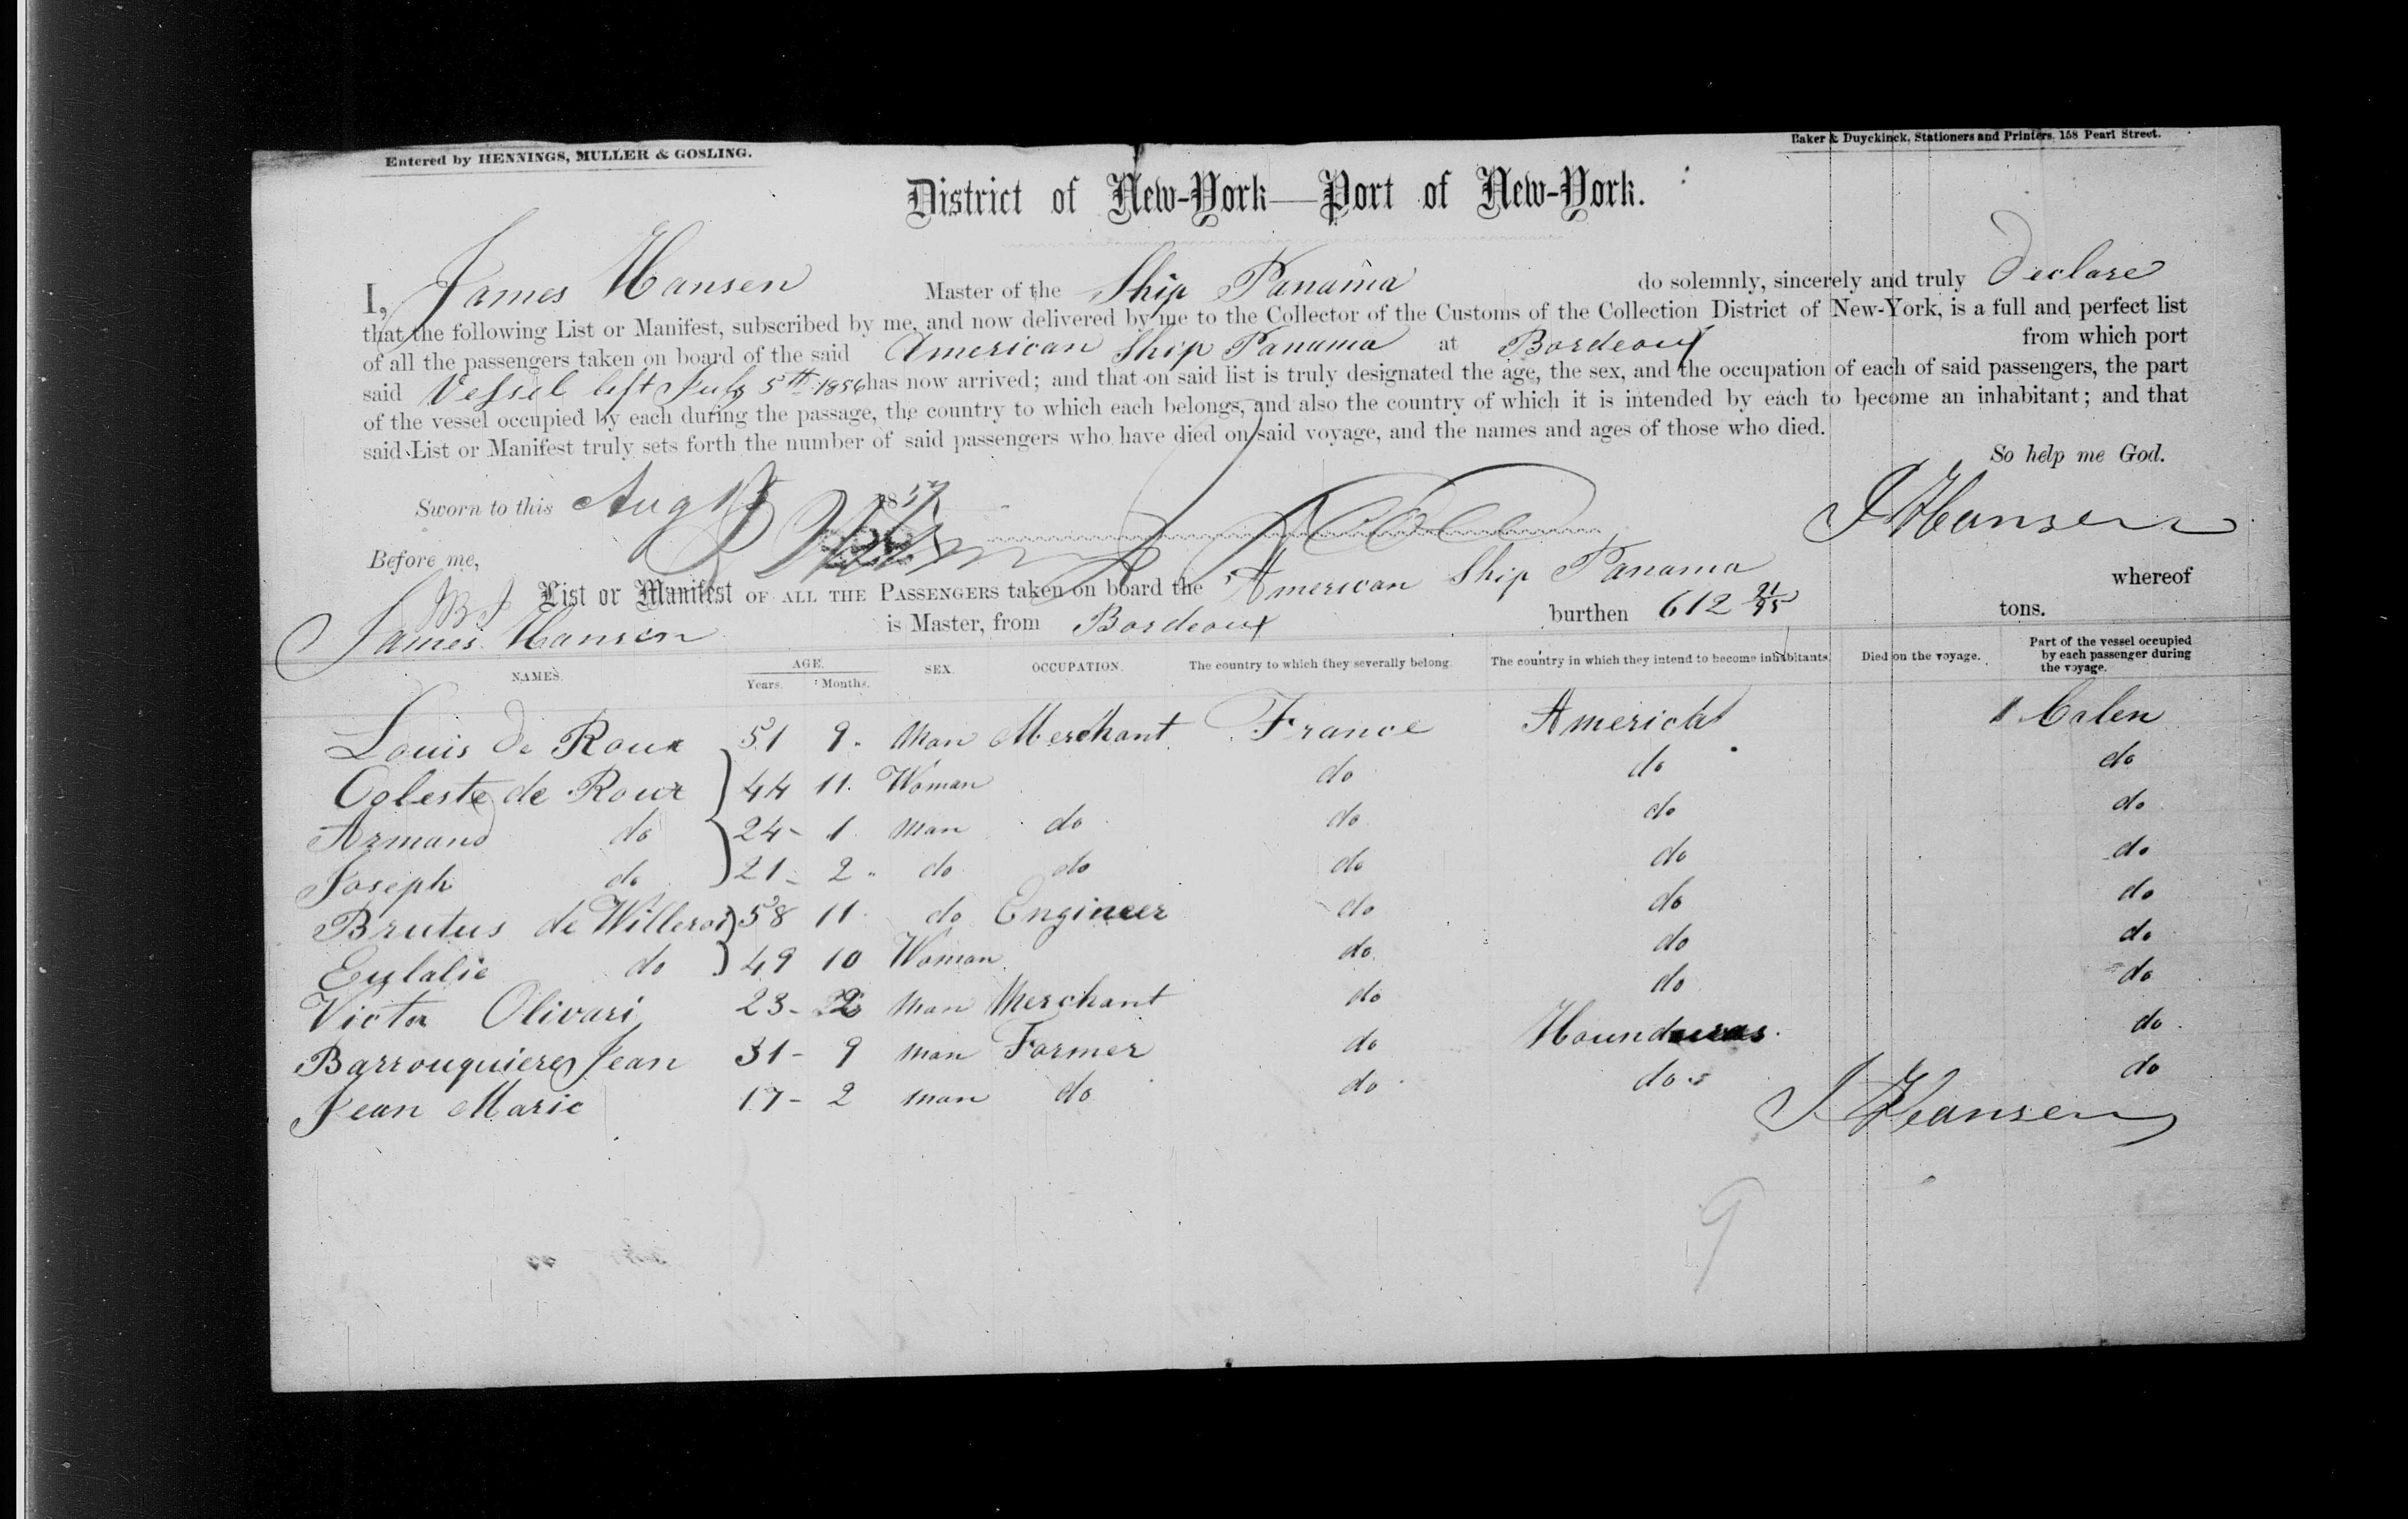 Entered by HENNINGS, MULLER & GOSLING.
Baker & Duyckinck, Stationers and Printers, 158 Pearl Street.
District of New-York—Port of New-York.
I, James Hansen Master of the Ship Panama do solemnly, sincerely and truly Declare
that the following List or Manifest, subscribed by me, and now delivered by me to the Collector of the Customs of the Collection District of New-York, is a full and perfect list
of all the passengers taken on board of the said American Ship Panama at Bordeaux from which port
said Vessel left July 5th 1856 has now arrived; and that on said list is truly designated the age, the sex, and the occupation of each of said passengers, the part
of the vessel occupied by each during the passage, the country to which each belongs, and also the country of which it is intended by each to become an inhabitant; and that
said List or Manifest truly sets forth the number of said passengers who have died on said voyage, and the names and ages of those who died.
So help me God.
Sworn to this Aug 185
J Hansen
Before me,
List or Manifest OF ALL THE PASSENGERS taken on board the American Ship Panama whereof
James Hansen is Master, from Bordeaux burthen 612 21/95 tons.
NAMES. AGE. Years. Months. SEX. OCCUPATION. The country to which they severally belong. The country in which they intend to become inhabitants. Died on the voyage. Part of the vessel occupied by each passenger during the voyage.
Louis de Roux 51 9 Man Merchant France America 1 Caben
Celeste de Roux 44 11 Woman do do do
Armand do 24 - 1 man do do do do
Joseph do 21 - 2 do do do do do
Brutus de Willeroi 58 11 do Engineer do do do
Eulalie do 49 10 Woman do do do
Victor Olivari 23 - 2 man Merchant do do do
Barrouquieres Jean 31 - 9 man Farmer do Hounduras do
Jean Marie 17 - 2 man do do do do
J Hansen
9